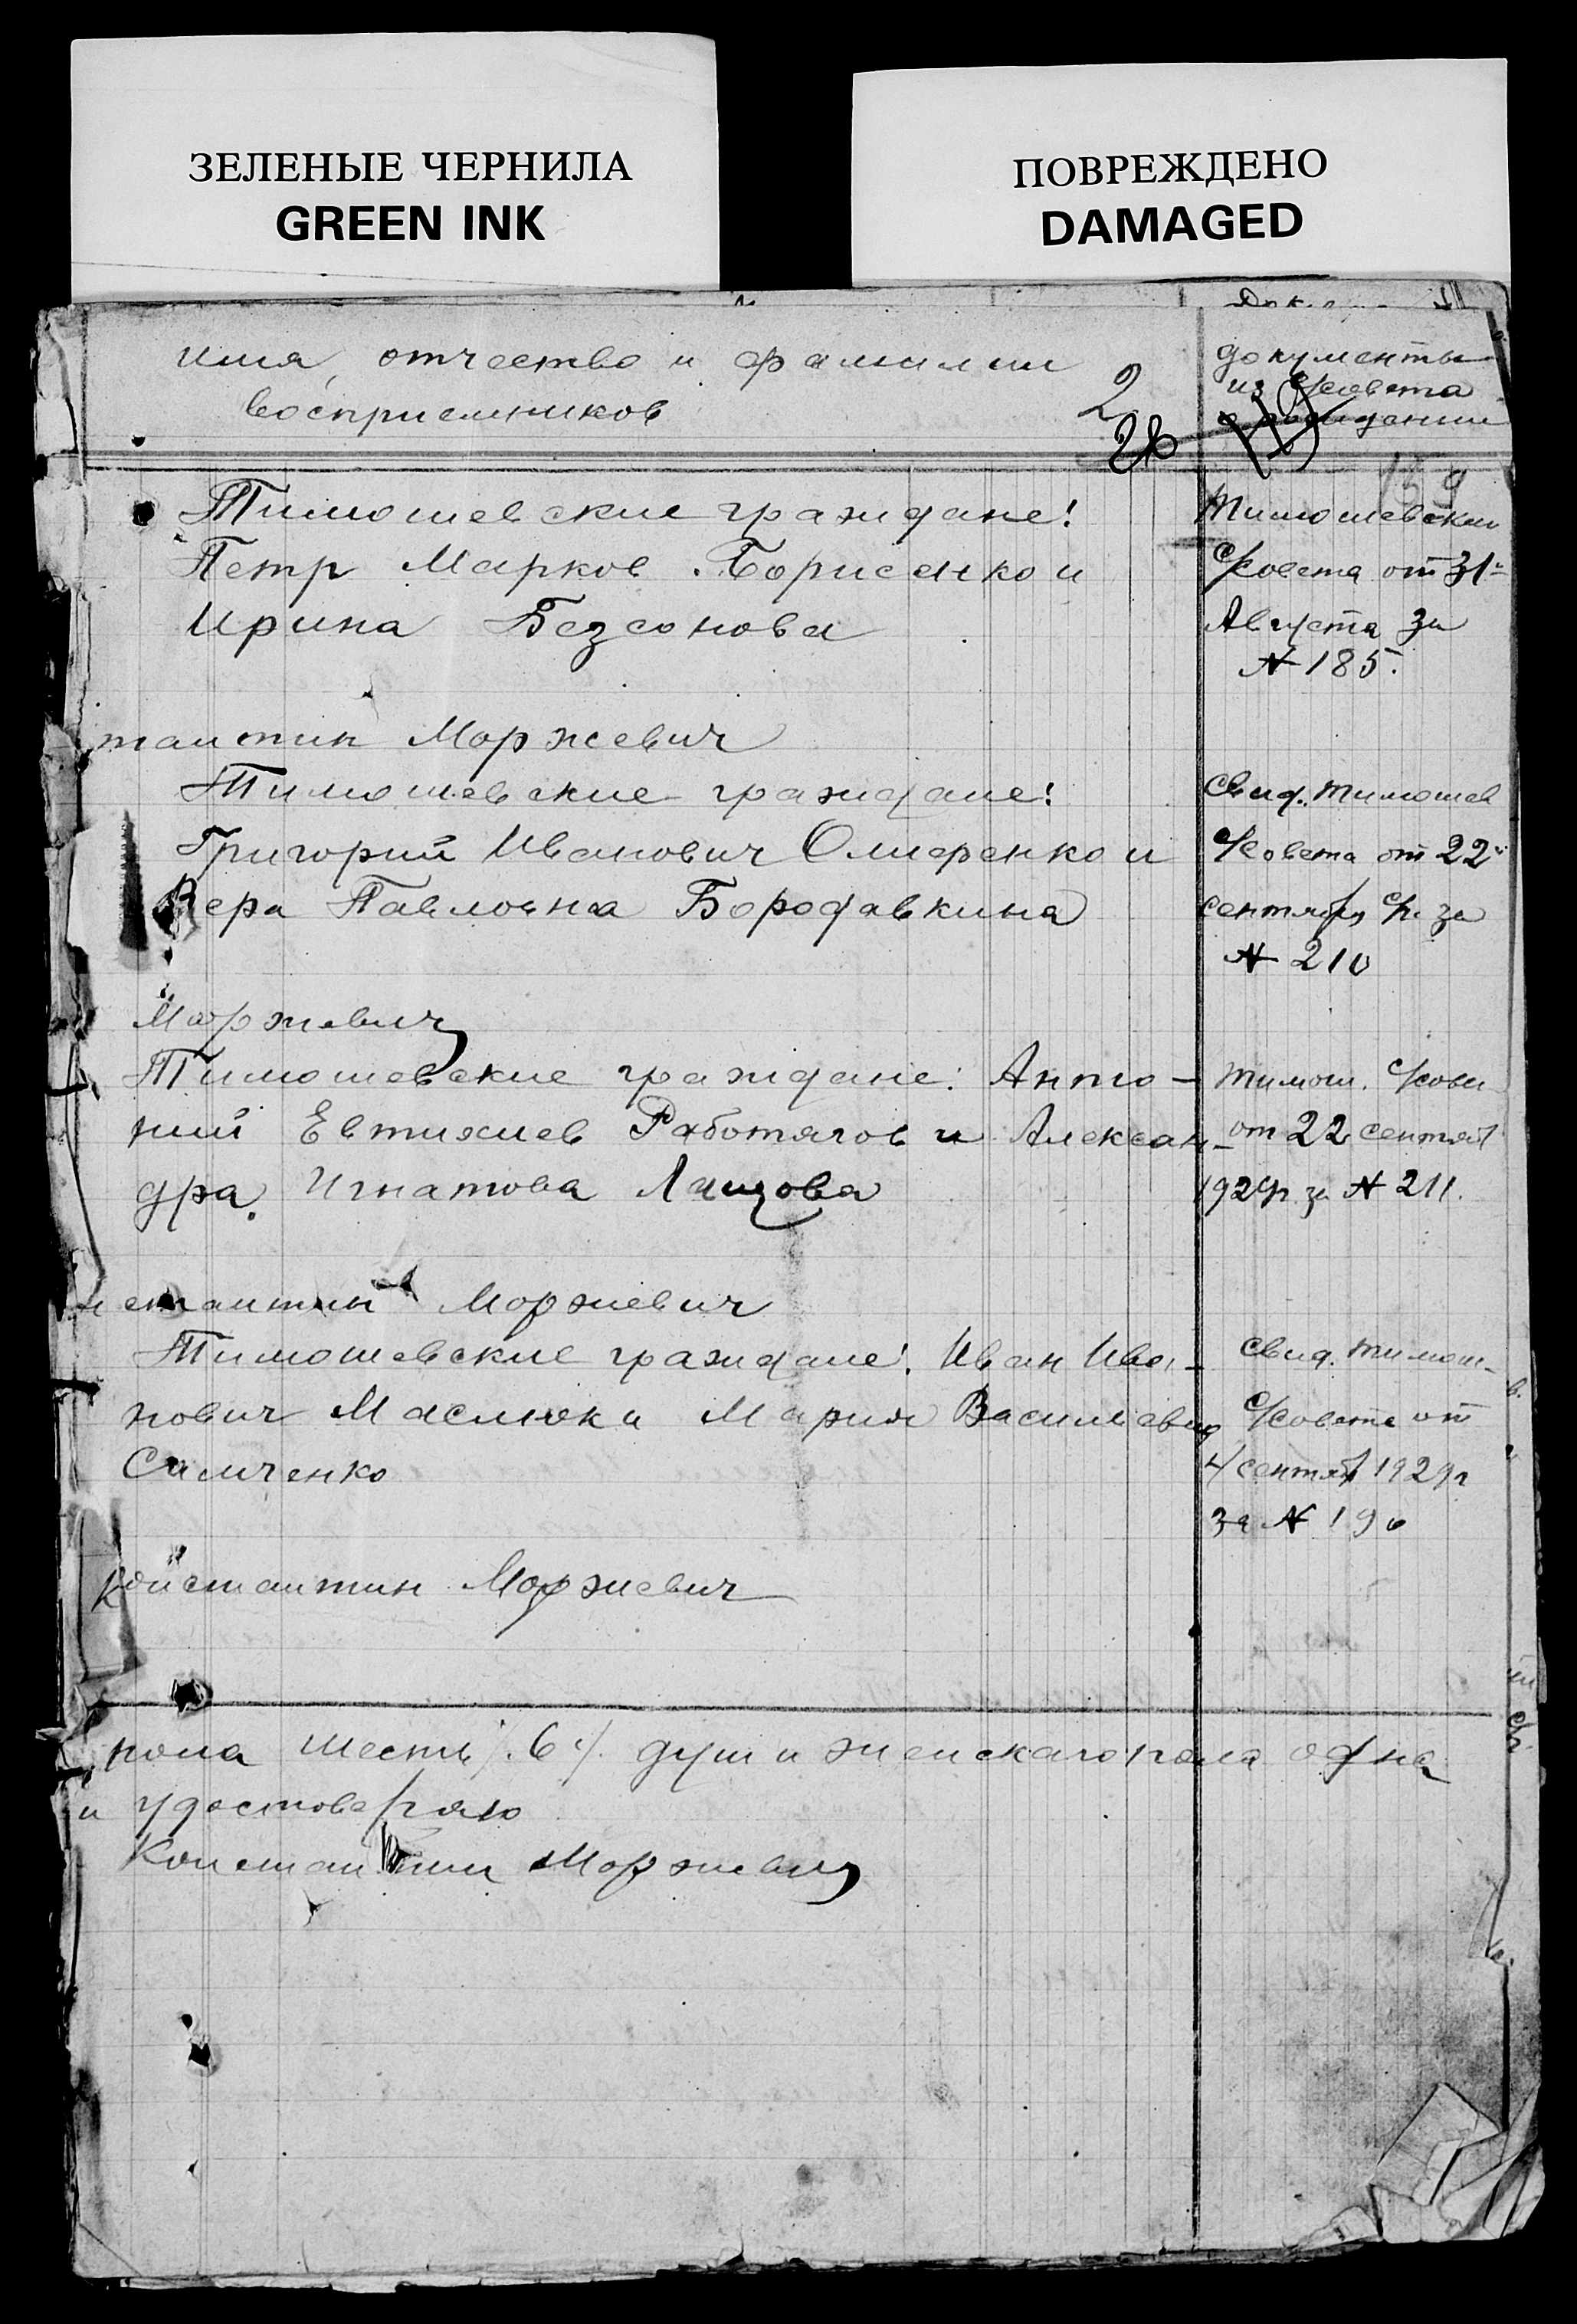 ЗЕЛЕНЫЕ ЧЕРНИЛА
GREEN INK
ПОВРЕЖДЕНО
DAMAGED
имя, отчество и фамилии
восприемников
2
26
документы
из с/совета
159
Тимошевские граждане:
Петр Марков Борисенко и
Ирина Безсонова
Тимошевский
с/совета от 31
Августа за
№ 185.
тантин Моржевич
Тимошевские граждане:
Григорий Иванович Омеренко и
Вера Павловна Бородавкина
Свид. Тимошев
с/совета от 22
сентября с/г. за
№ 210
Моржевич
Тимошевские граждане: Анто-
ний Евтихиев Работягов и Алексан-
дра Игнатова
Тимош. с/сове
от 22 сентяб
1929г. за № 211.
стантин Моржевич
Тимошевские граждане: Иван Ива-
нович Маслюк и Мария Васильевна
Симченко
Свид. Тимош-
с/совета от
4 сентяб 1929г
за № 190
Константин Моржевич
пола шесть /.6./ душ и женскаго пола одна
и удостоверяю
Константин Моржевич